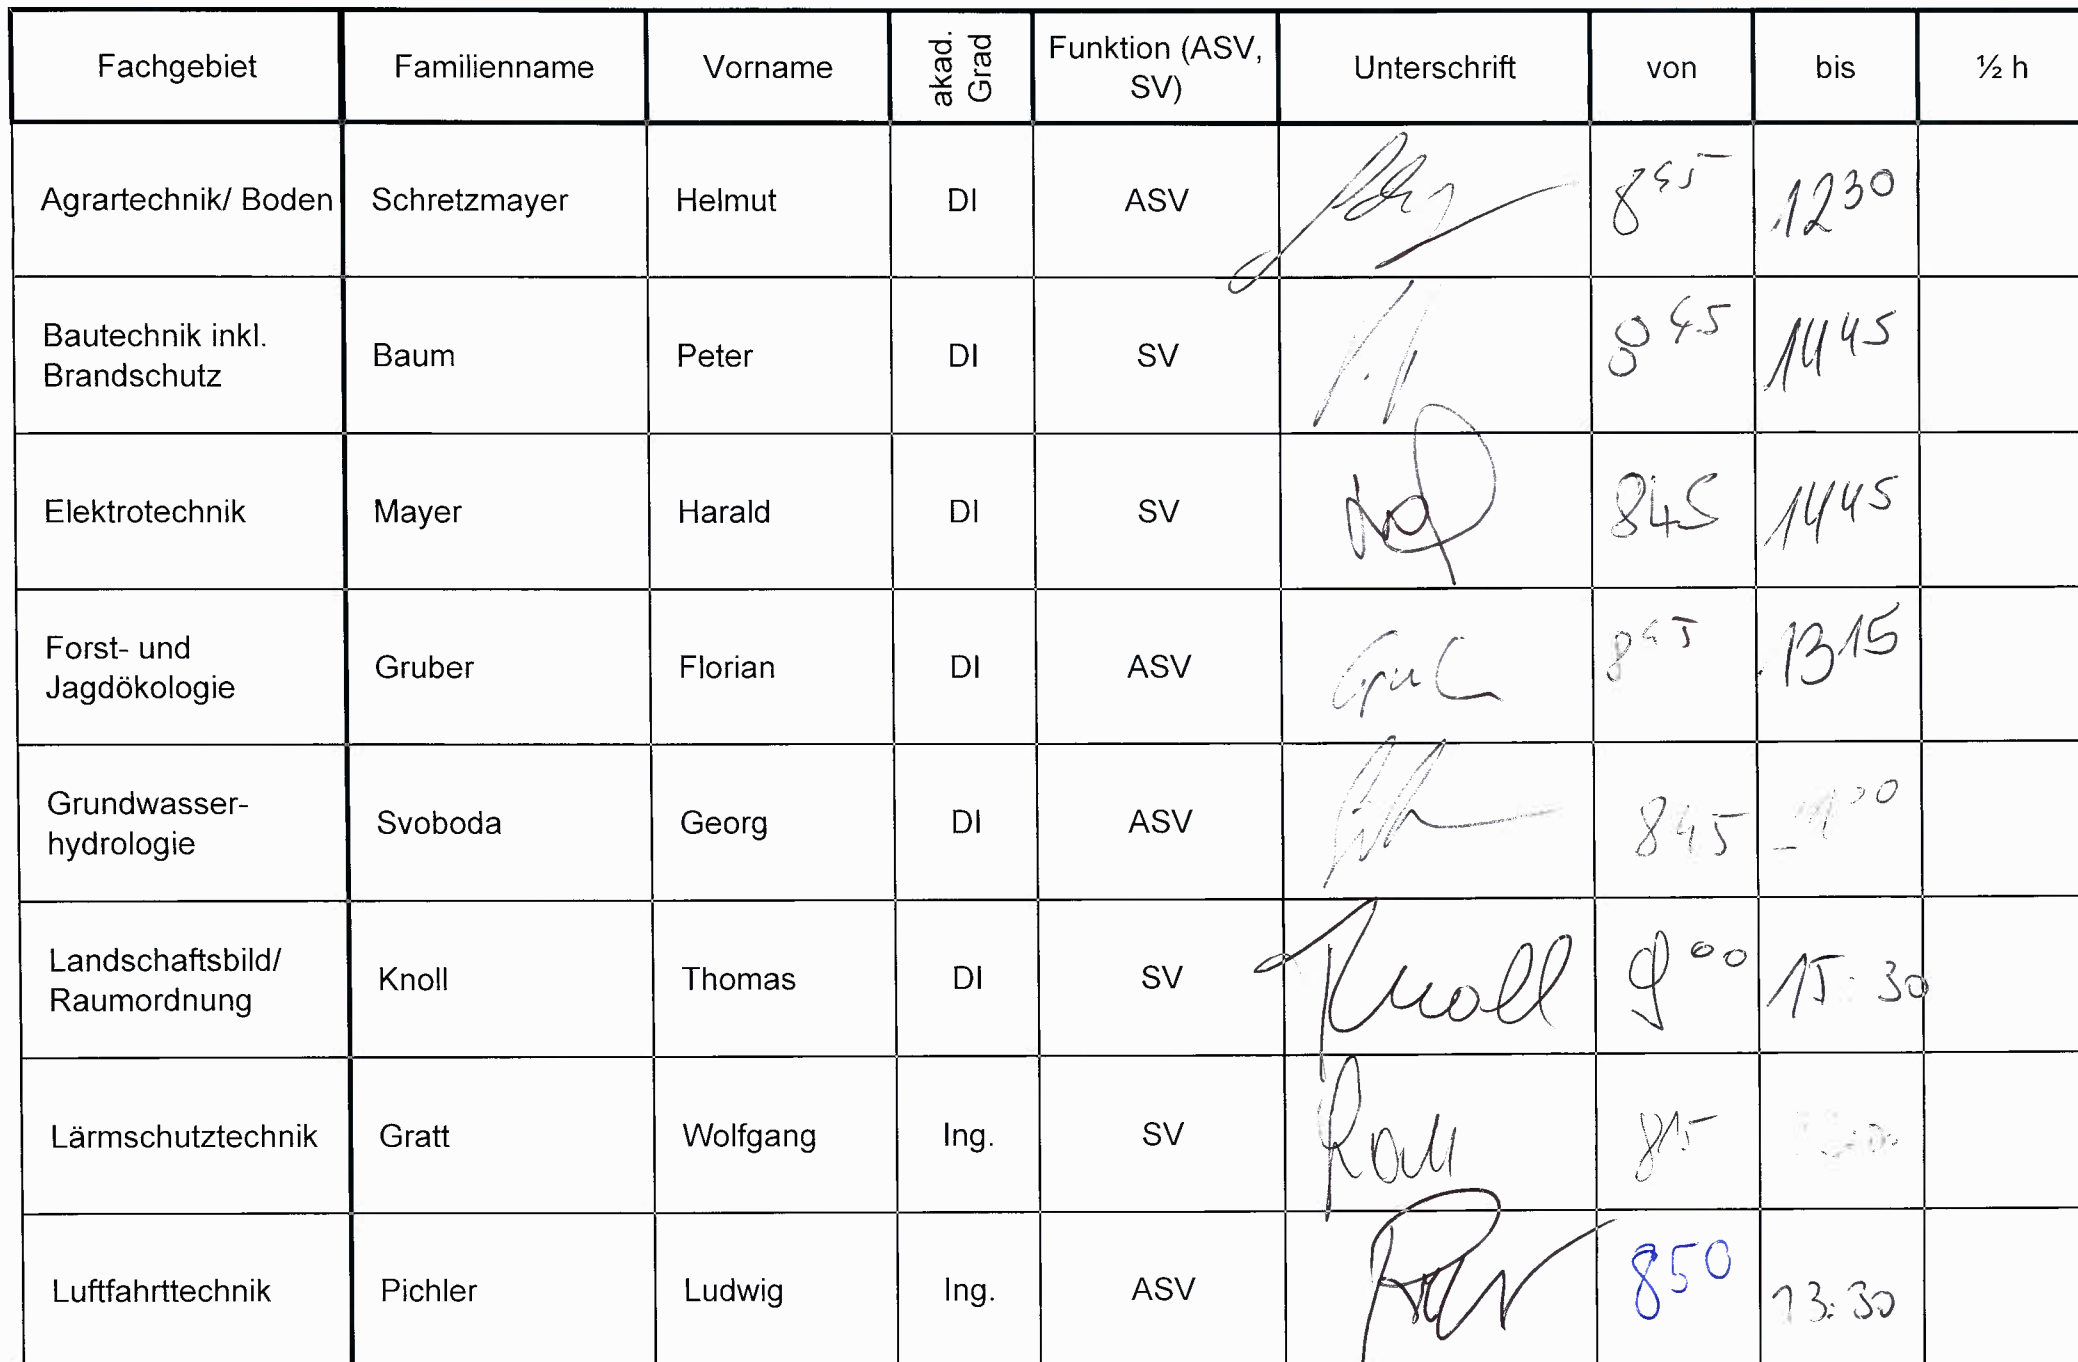 Fachgebiet Familienname Vorname akad. Grad Funktion (ASV, SV) Unterschrift von bis ½ h
Agrartechnik/ Boden Schretzmayer Helmut DI ASV 8 45 12 30
Bautechnik inkl.
Brandschutz Baum Peter DI SV 8 45 14 45
Elektrotechnik Mayer Harald DI SV 845 14 45
Forst- und
Jagdökologie Gruber Florian DI ASV 8 45 13 15
Grundwasser-
hydrologie Svoboda Georg DI ASV 845
Landschaftsbild/
Raumordnung Knoll Thomas DI SV Knoll 9 00 15:30
Lärmschutztechnik Gratt Wolfgang Ing. SV 815
Luftfahrttechnik Pichler Ludwig Ing. ASV 850 13:30